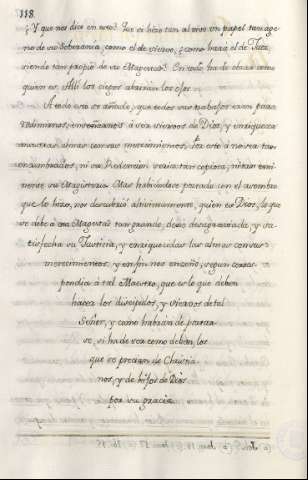 118.
¿Y que nos dice en esto? Que se hizo tan al vivo un papel tan age-
no de su Soberania, como el de siervo, ¿como hará el de Juez,
siendo tan propio de su Magestad? En todo ha de obrar como
quien es. Alli los ciegos abrirán los ojos.
A todo esto se añade, que todos sus trabajos eran para
redimirnos, enseñarnos á ser siervos de Dios, y enriquecer
nuestras almas con sus merecimientos. Por esto á no ser tan
ni su Redencion seria tan copiosa, ni tan emi-
nente su Magisterio. Mas habiendose portado con el
que lo hizo, nos descubrió altivinamente, quien es Dios, lo que
se debe á su Magestad tan grande, dexó desagraviada, y sa-
tisfecha su Justicia, y enriquecidas las almas con sus
merecimientos, y en fin nos enseñó, segun corres-
pondia á tal Maestro, que es lo que deben
hacer los discipulos, y siervos de tal
Señor, y como habrán de portar-
se, si ha de ser como deben, los
que se precian de Christia-
nos, y de hijos de Dios
por su gracia.